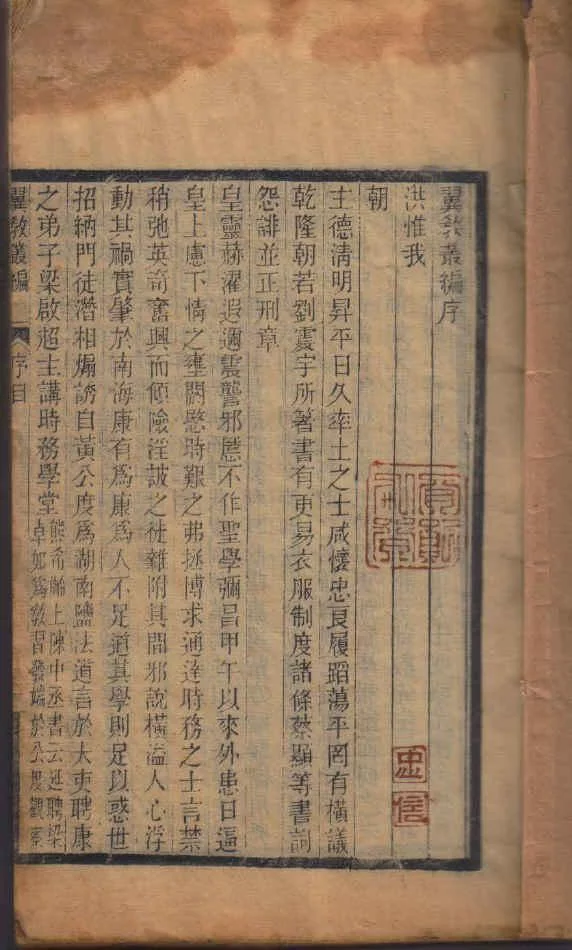 翼教叢編序
洪惟我
朝
主德清明昇平日久率土之士咸懷忠良履蹈蕩平罔有橫議
乾隆朝若劉震宇所著書有更易衣服制度諸條蔡顯等書詞
怨誹並正刑章
皇靈赫濯遐邇震讋邪慝不作聖學彌昌甲午以來外患日逼
皇上慮下情之壅閼愍時艱之弗拯博求通達時務之士言禁
稍弛英奇奮興而傾險淫詖之徒雜附其間邪說橫溢人心浮
動其禍實肇於南海康有爲康爲人不足道其學則足以惑世
招納門徒潛相煽誘自黃公度爲湖南鹽法道言於大吏聘康
之弟子梁啟超主講時務學堂
熊希齡上陳中丞書云延聘梁
卓如爲敎習發端於公度觀察
翼敎叢編
序目
忠信